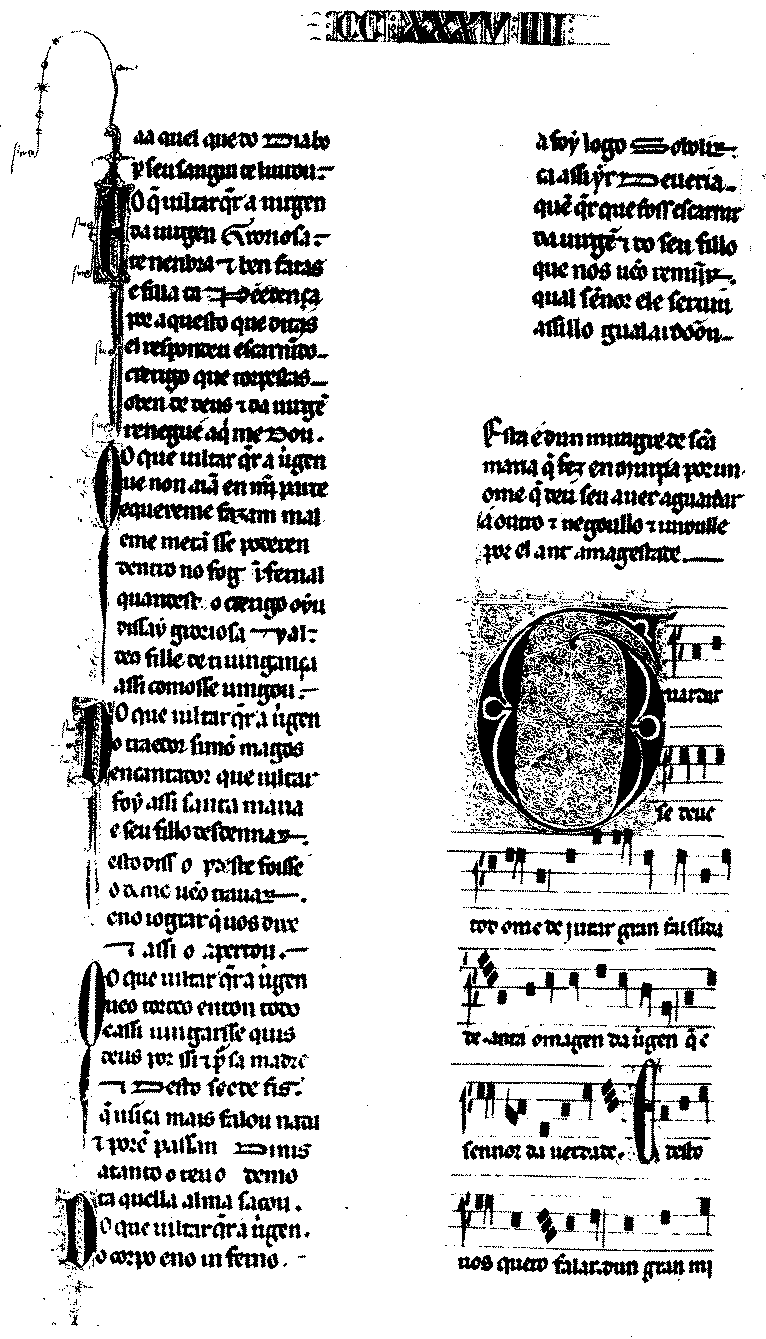 CCXXXVIII
aa quel que do diabo
O q̃ uiltar q̃r a uirgen
da uirgen groriosa
e filla ta
por a questo que dizas
el respondeu escarnido
crerigo que torpestas
osten de deus ⁊ da uirgẽ
renegue aq̃ me dou.
O que uiltar q̃r a uirgen
que non aiã en mj̃ parte
e quereme fazam mal
e me metã sse poderen
dentro no fog ĩfernal
quand est o crerigo oyu
dissaỹ groriosa ual
teo fille de ningança
assi como sse uingou
O que uiltar q̃r a uirgen
o traedor
encantador que uiltar
foỹ assi santa maria
e seu fillo desdennar
esto diss o preste fousse
eno logar q̃ uos dixe
assi o apertou.
O que uiltar q̃r a uirgen
ueo torceo enton todo
cassi uingarsse quis
deus por ssi ⁊ p̃ sa madre
desto seede fis.
q̃ nũca mais falou nada
⁊ porẽ passan dinis
atanto o teu o demo
ta quella alma sacou.
O que uiltar q̃r a uirgen.
O corpo eno inferno.
a foỹ logo
ca assi ỹr deueria
quẽ q̃r que foss escarnir
da uirgẽ ⁊ do seu fillo
que nos uẽo remijr
qual sẽnor ele seruiu
assi llo gualardoõu
Esta é dun miragre de sc̃a
maria q̃ fez en por un
ome q̃ deu seu auer a guardar
a outro ⁊ negoullo ⁊
por el ant a magestade.
Guardar
se deue
tod ome de jurar gran falssida
de ant a omagen da uirgen q̃ é
sennor da uerdade. E desto
uos quero falar dun gran mi